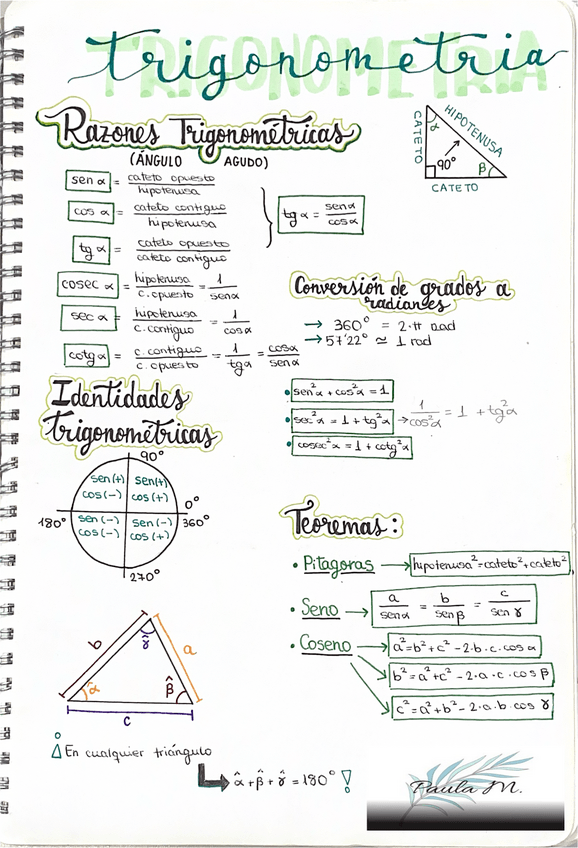 trigonometria
TRIGONOMETRIA
Razones Trigonométricas
(ÁNGULO AGUDO)
sen α = cateto opuesto / hipotenusa
cos α = cateto contiguo / hipotenusa
tg α = cateto opuesto / cateto contiguo
tg α = sen α / cos α
cosec α = hipotenusa / c. opuesto = 1 / sen α
sec α = hipotenusa / c. contiguo = 1 / cos α
cotg α = c. contiguo / c. opuesto = 1 / tg α = cos α / sen α
CATETO
HIPOTENUSA
α
90°
β
CATETO
Conversión de grados a
radianes
→ 360° = 2·π rad
→ 57'22° ≃ 1 rad
Identidades
trigonométricas
• sen²α + cos²α = 1
• sec²α = 1 + tg²α → 1 / cos²α = 1 + tg²α
• cosec²α = 1 + cotg²α
90°
sen(+) sen(+)
cos(-) cos(+)
0°
180° 360°
sen(-) sen(-)
cos(-) cos(+)
270°
Teoremas:
• Pitágoras → hipotenusa² = cateto² + cateto²
• Seno → a / sen α = b / sen β = c / sen γ
• Coseno → a² = b² + c² - 2·b·c·cos α
b² = a² + c² - 2·a·c·cos β
c² = a² + b² - 2·a·b·cos γ
b
γ̂
a
α̂
β̂
c
En cualquier triángulo
α̂ + β̂ + γ̂ = 180° !
Paula M.